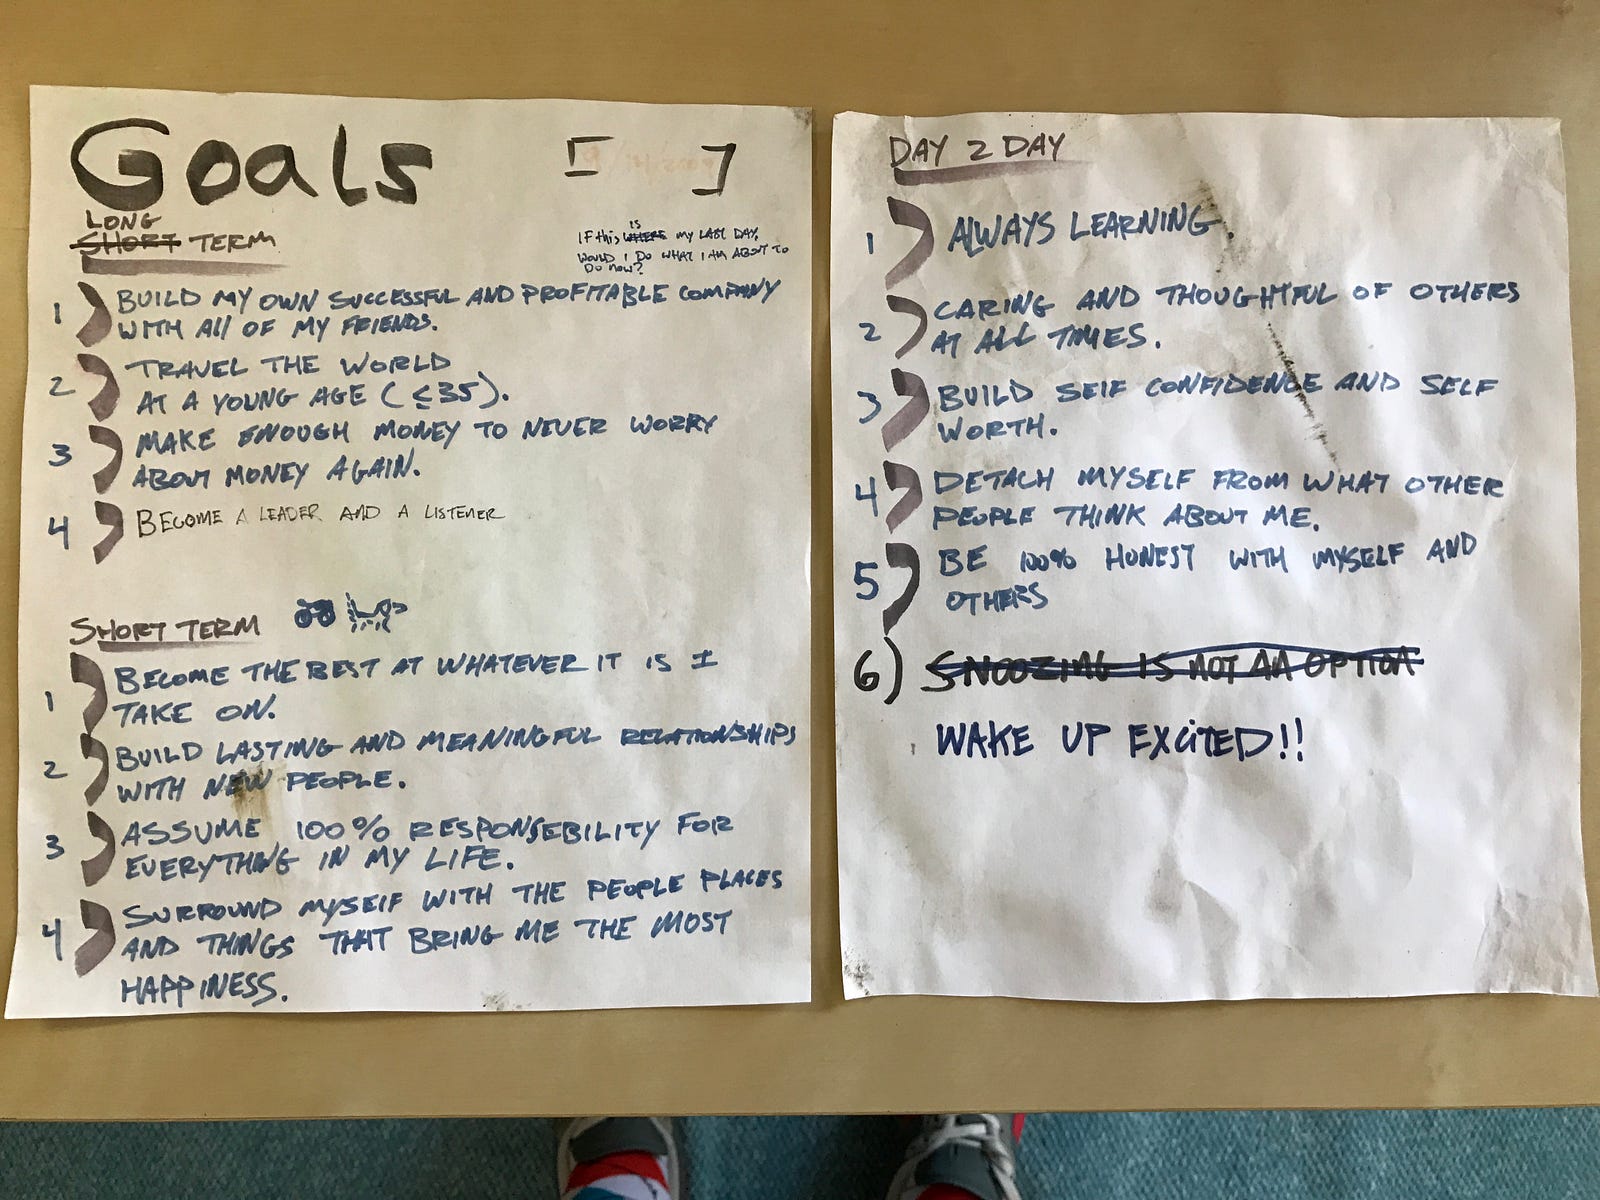 Goals
[ ]
LONG
SHORT TERM
IF this WHERE is my LAST DAY,
WOULD I DO WHAT I AM ABOUT TO
DO NOW?
1) BUILD MY OWN SUCCESSFUL AND PROFITABLE COMPANY
WITH All OF MY FRIENDS.
2) TRAVEL THE WORLD
AT A YOUNG AGE (≤35).
3) MAKE ENOUGH MONEY TO NEVER WORRY
ABOUT MONEY AGAIN.
4) BECOME A LEADER AND A LISTENER
SHORT TERM
1) BECOME THE BEST AT WHATEVER IT IS I
TAKE ON.
2) BUILD LASTING AND MEANINGFUL RELATIONSHIPS
WITH NEW PEOPLE.
3) ASSUME 100% RESPONSEBILITY FOR
EVERYTHING IN MY LIFE.
4) SURROUND MYSELF WITH THE PEOPLE PLACES
AND THINGS THAT BRING ME THE MOST
HAPPINESS.
DAY 2 DAY
1) ALWAYS LEARNING.
2) CARING AND THOUGHTFUL OF OTHERS
AT ALL TIMES.
3) BUILD SELF CONFIDENCE AND SELF
WORTH.
4) DETACH MYSELF FROM WHAT OTHER
PEOPLE THINK ABOUT ME.
5) BE 100% HONEST WITH MYSELF AND
OTHERS
6) SNOOZING IS NOT AN OPTION
WAKE UP EXCITED!!